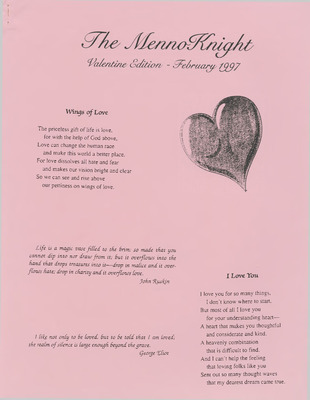 The MennoKnight
Valentine Edition - February 1997
Wings of Love
The priceless gift of life is love,
for with the help of God above,
Love can change the human race
and make this world a better place.
For love dissolves all hate and fear
and makes our vision bright and clear
So we can see and rise above
our pettiness on wings of love.
Life is a magic vase filled to the brim; so made that you
cannot dip into nor draw from it; but it overflows into the
hand that drops treasures into it—drop in malice and it over-
flows hate; drop in charity and it overflows love.
John Ruskin
I like not only to be loved, but to be told that I am loved;
the realm of silence is large enough beyond the grave.
George Eliot
I Love You
I love you for so many things,
I don't know where to start.
But most of all I love you
for your understanding heart—
A heart that makes you thoughtful
and considerate and kind.
A heavenly combination
that is difficult to find.
And I can't help the feeling
that loving folks like you
Sent out so many thought waves
that my dearest dream came true.